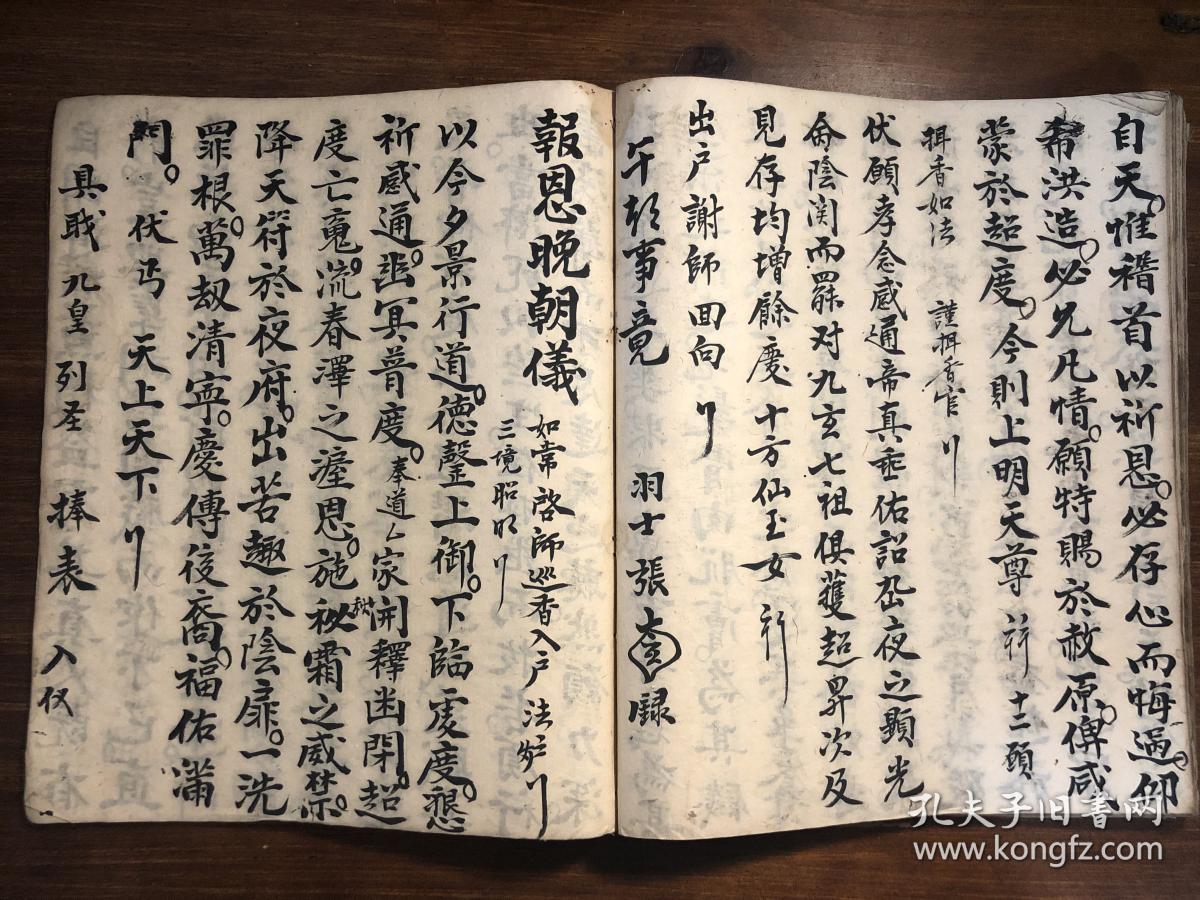 自天。惟稽首以祈恩。必存心而悔過。仰
希洪造。必允凡情。願特賜於赦原。俾咸
蒙於超度。今則上明天尊 十二願
捻香如法 謹捻香官
伏願孝念感通帝真垂佑詔夜之顯光
侖陰関而罷对九玄七祖俱獲超昇次及
見存均增餘慶十方仙玉女
出户謝師回向
午朝事竟 羽士張 録
報恩晚朝儀 如常啓師巡香入户 法炉
三境昭明
以今夕景行道。德馨上御。下臨虔度。懇
祈感通。幽冥普度。奉道厶家開釋幽閉。超
度亡魂。流春澤之渥恩。施秋霜之威禁。
降天符於夜府。出苦趣於陰扉。一洗
罪根。萬劫清寧。慶傳後裔。福佑滿
門。伏丐 天上天下
具職 九皇列圣 捧表 入仪
孔夫子旧书网
www.kongfz.com